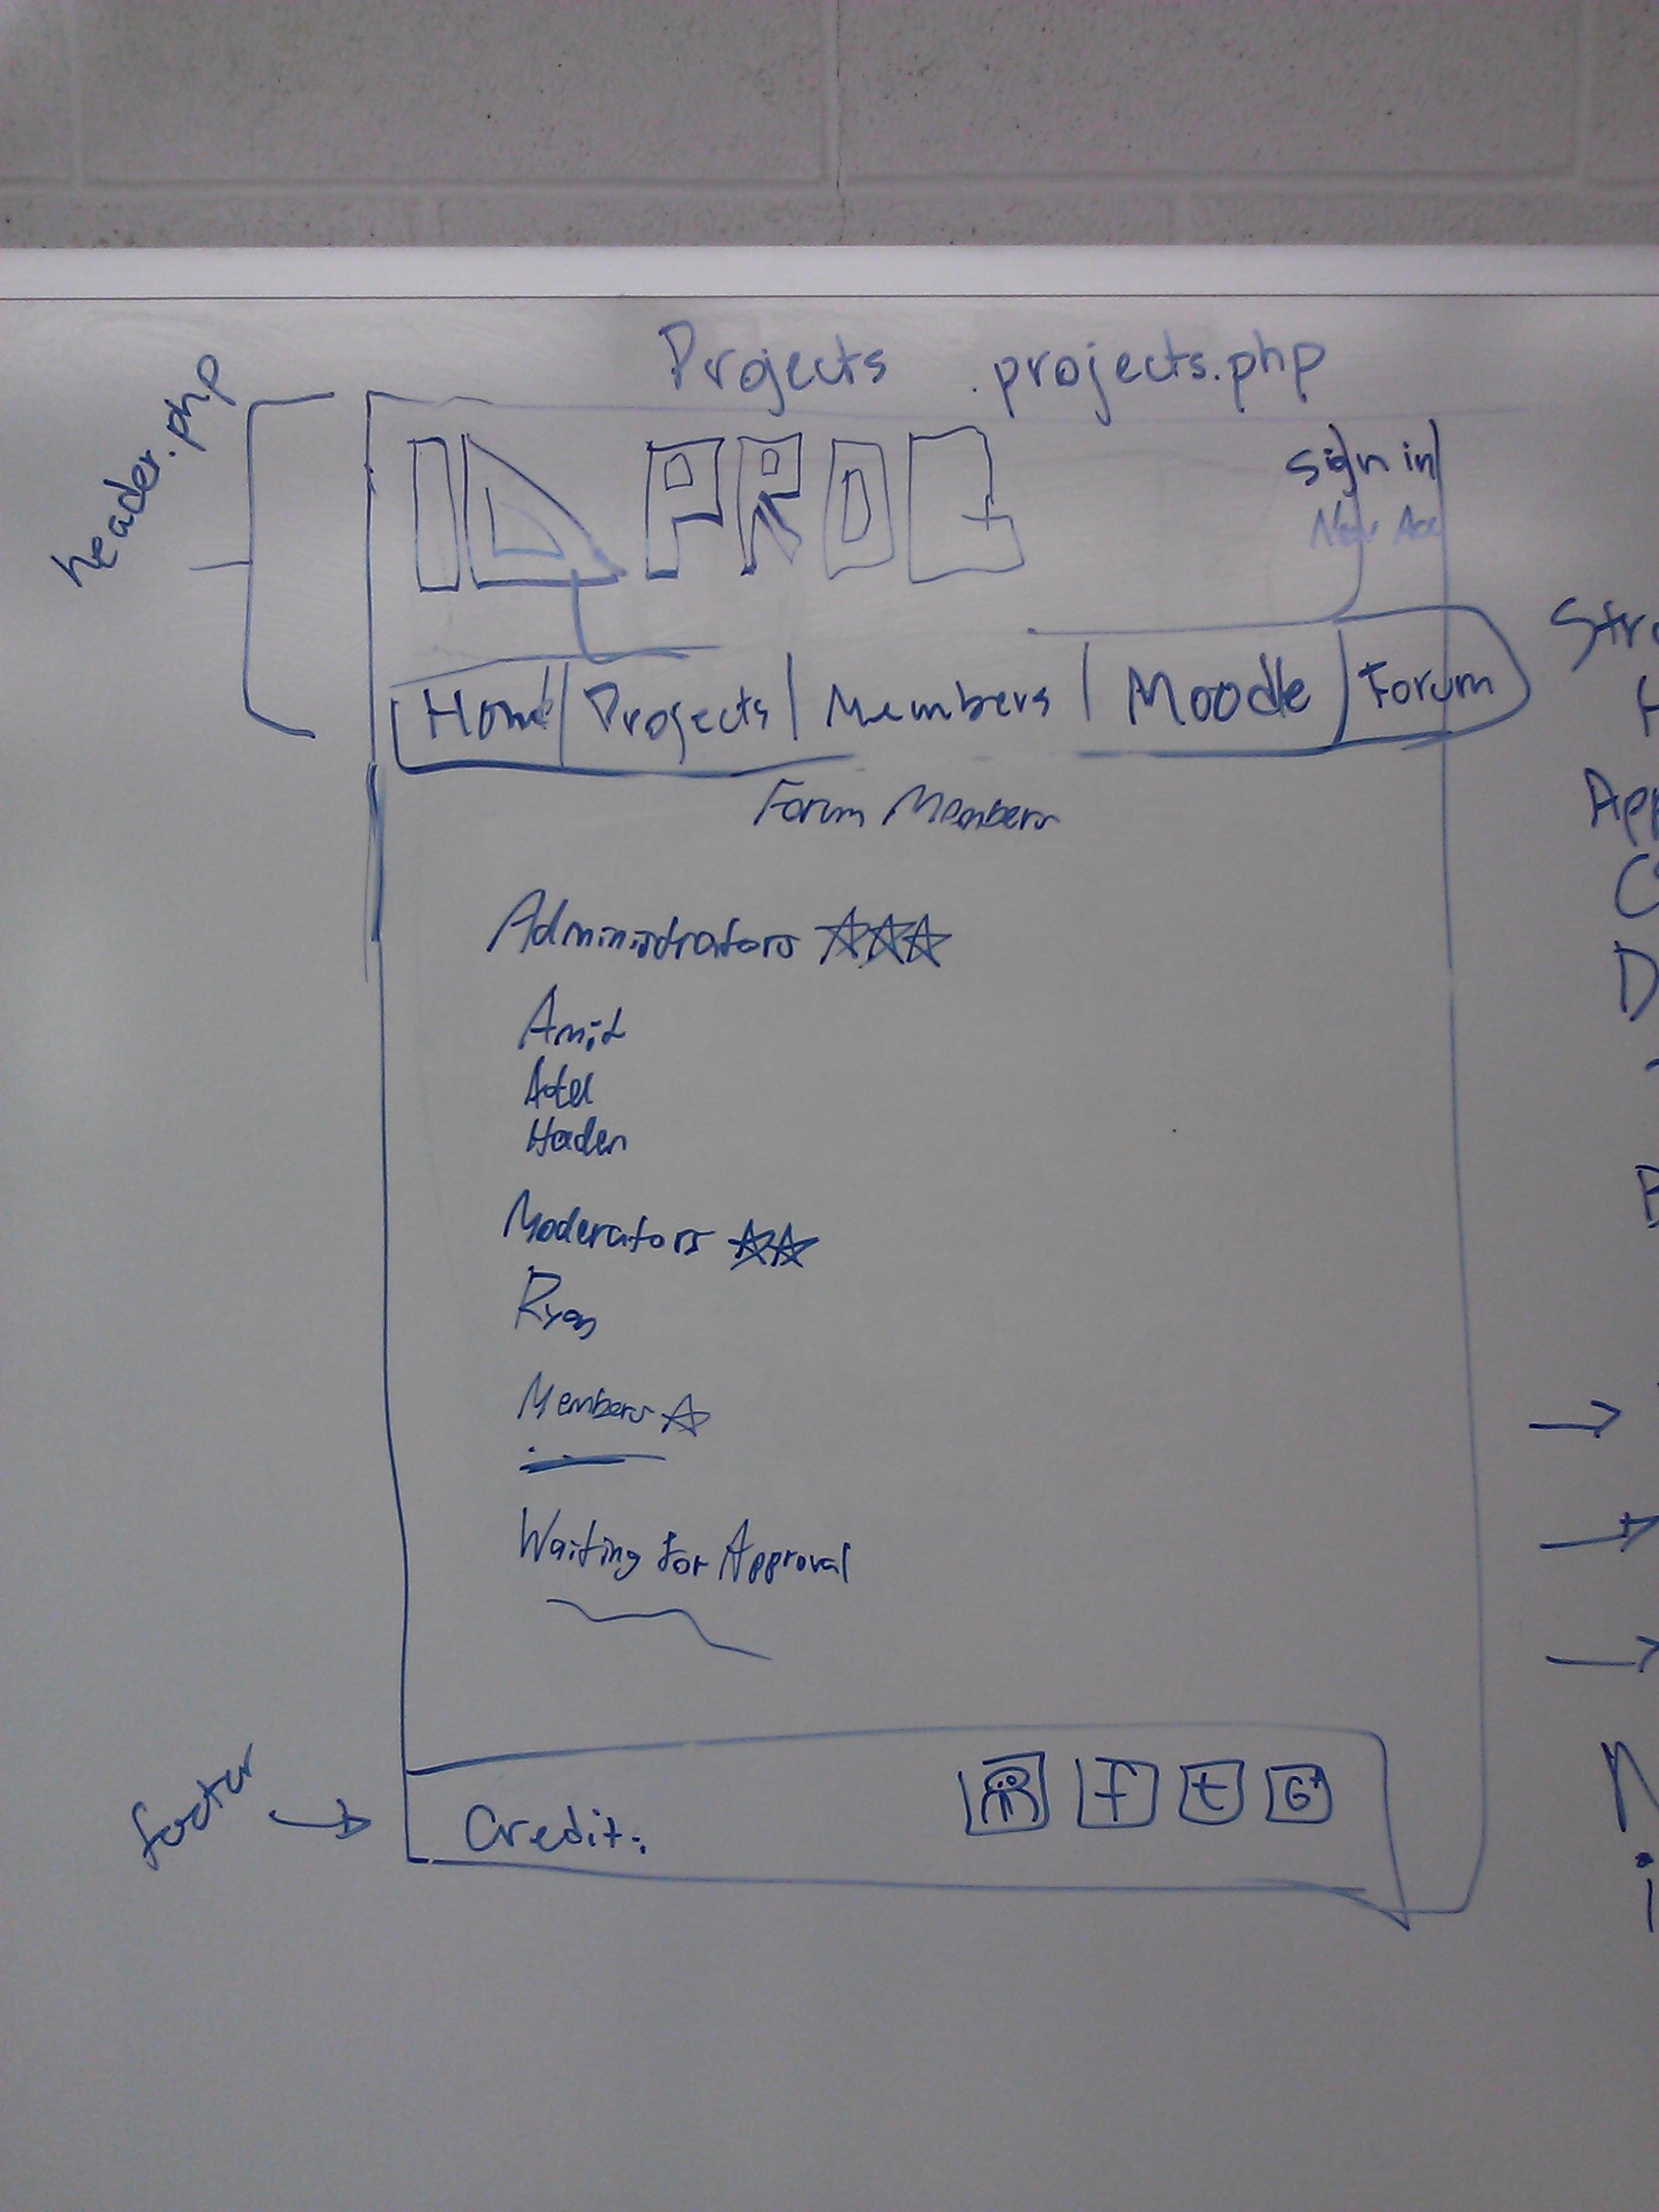 Projects .projects.php
header.php
sign in
New Acc
Home Projects Members Moodle Forum
Forum Members
Administrators
Amit
Adel
Haden
Moderators
Ryan
Members
Waiting for Approval
footer
Credit:
f t G+